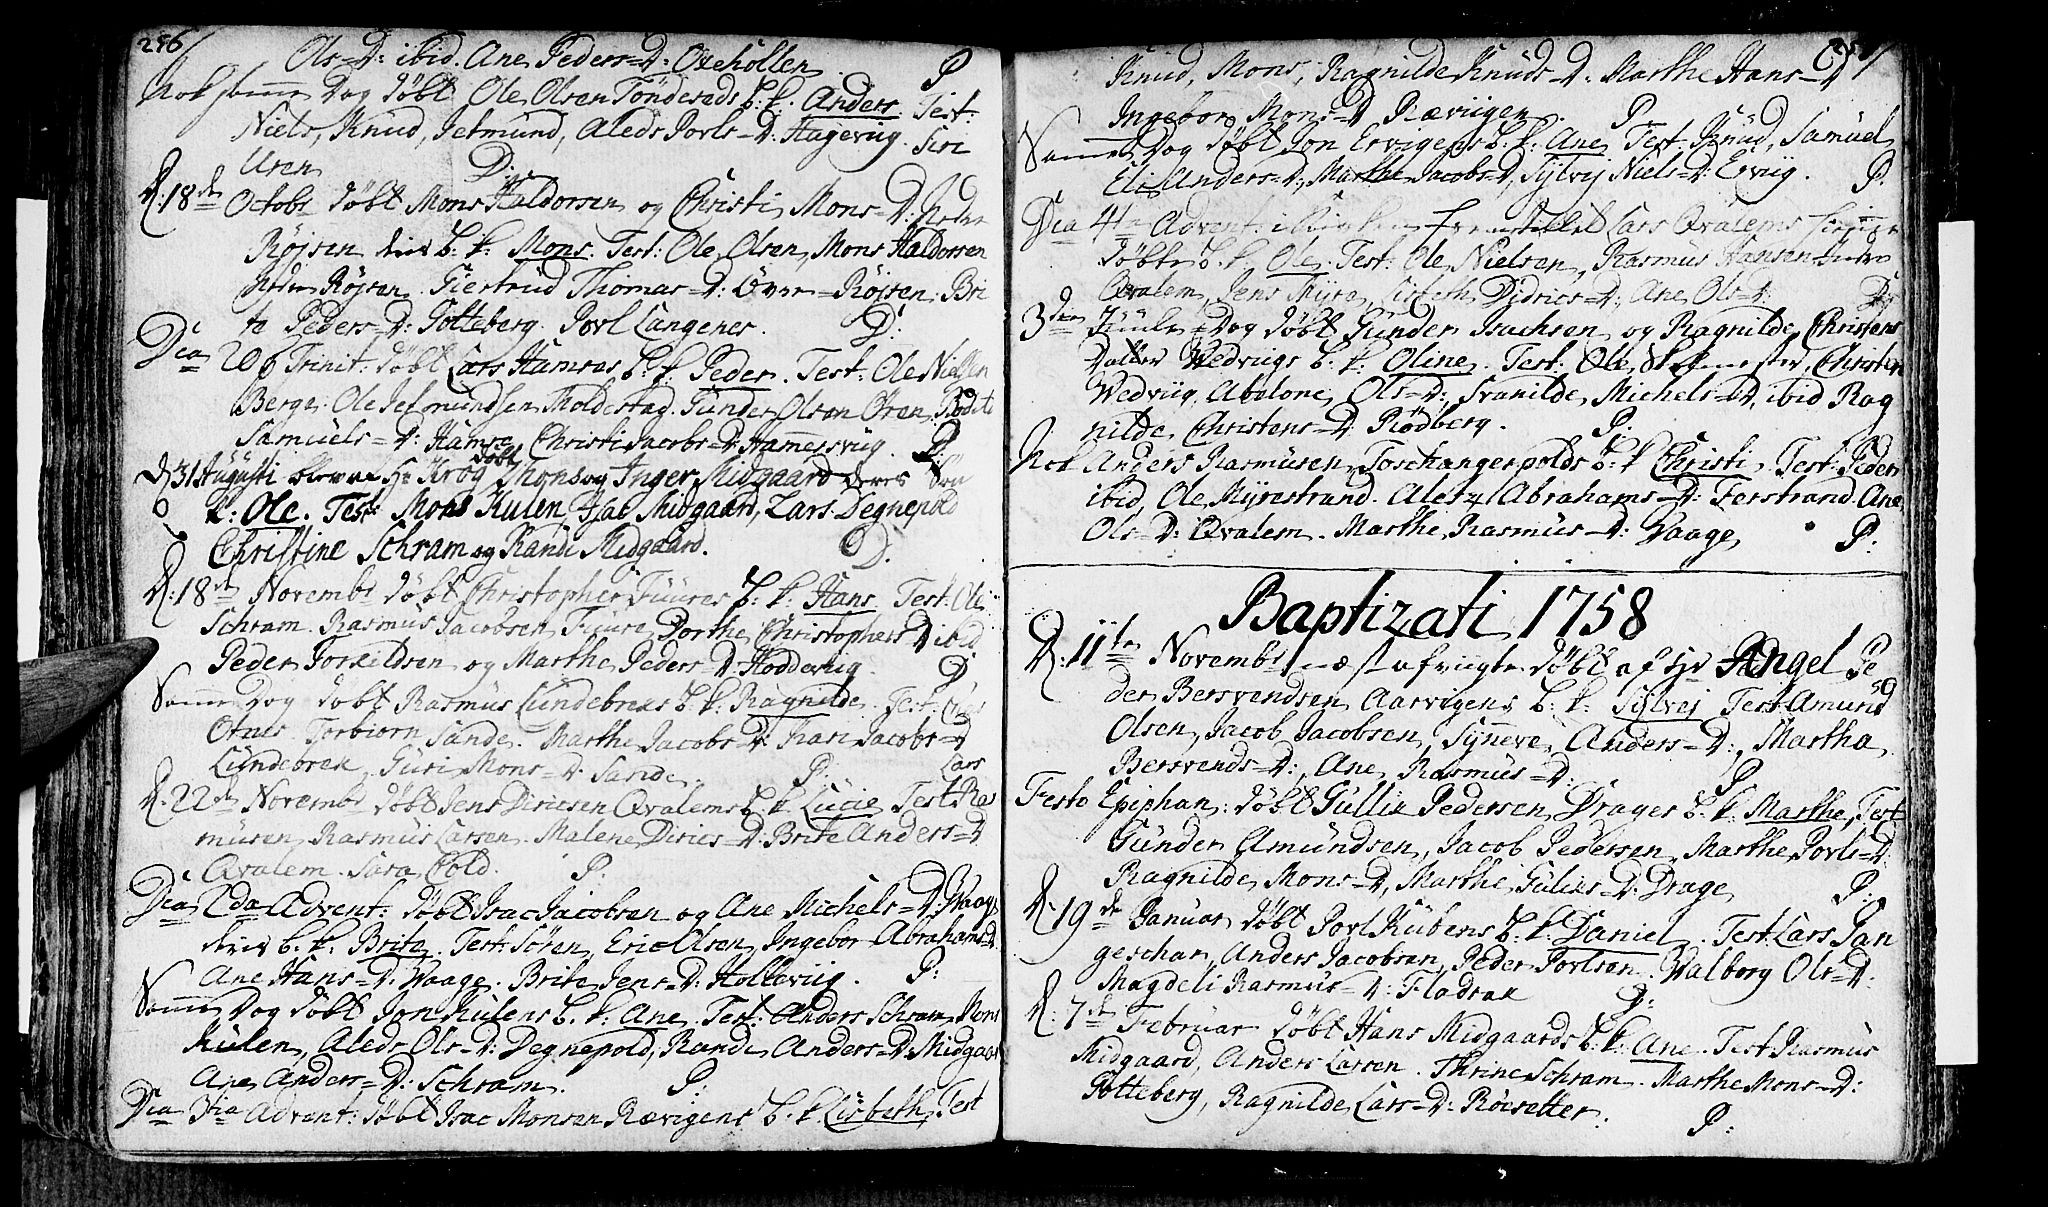 256
Ols=D: ibid. Ane Peders=D: Oxehollen P
Nok samme Dag døbt Ole Olsen Tøndereds b. k. Anders. Test:
Niels, Knud, Jetmund, Aleds Povls=D: Hagevug. Siri
Uren D:
D: 18de Octobr døbt Mons Haldorsen og Christi Mons=D:
Røjsen b: k. Mons. Test: Ole Olsen, Mons Haldorsen
Røjsen. Giertrud Thomas=D: Øvre=Røjsen. Bri
te Peders=D: Gotteberg. Povl Langenes. D:
Dca 20 p Trinit: døbt Lars Hamres b. k. Peder. Test: Ole Nielsen
Berge. Ole Jetmundsen Moldestad. Gunder Olsen Otren, Bodite
Samuels=D: Hamre, Christi Jacobs=D: Hamersvug. P:
d. 31 Augusti blev af Hr Krog døbt Mons og Inger Midgaard deres Søn
k: Ole. Test: Mons Kulen, Isac Midgaard, Lars Degnepold
Christine Schram og Randi Midgaard. D.
D: 18de Novembr døbt Christopher Fuures b. k. Hans. Test: Ole
Schram. Rasmus Jacobsen Fuure, Dorthe Christophers D ibid
Peder Torkildsen og Marthe Peders=D: Hoddevug. D
Samme Dag døbt Rasmus Lundebreks b. k. Ragnilde. Test: Lars
Otnes. Torbiorn Sande. Marthe Jacobs=D: Kari Jacobs=D
Lundebrek, Guri Mons=D. Sande. P: Lars
D. 22de Novembr døbt Jens Diricsen Qvalems b. k. Lucie. Test: Ras
musen, Rasmus Larsen. Malene Dirics=D: Brite Anders=D
Qvalem. Sara Cold. P:
Dca 2da Advent: døbt Isac Jacobsen og Ane Michels=D: Vaage
b. k. Brite. Test: Søren, Eric Olsen, Ingebor Abrahams=D.
Ane Hans=D: Vaage. Brite Jens=D: Hollevug. P:
Samme Dag døbt Jon Kulens b. k. Ane. Test: Anders Schram, Mons
Kulen, Aleds Ols=D: Degnepold, Randi Anders=D: Midgaar
Ane Anders=D: Schram. P:
Dca 3tia Advent: døbt Isac Monsen Rævigens b. k. Lisbeth, Test
Knud, Mons, Ragnilde Knuds=D: Marthe Hans=D
Ingebor Mons=D Rævigen. P.
Samme Dag døbt Jon Ervigens b. k. Ane. Test: Knud, Samuel
Eli Anders=D:, Marthe Jacobs=D, Sylvej Niels=D: Ervug. P.
Dca 4ta Advent: i Kirken fremstillet Lars Qvalems hiemme
døbte b. k. Ole. Test: Ole Nielsen, Rasmus Hansen
Qvalem, Jens Myre, Lisbeth Didrics=D:, Ane Ols=D:
3die Juule=Dag døbt Gunder Isachsen og Ragnilde Christens
Datter Vedvugs b. k. Oline. Test: Ole, Christen
Vedvug, Abelone Ols=D: Svanilde Michels=D, ibid Rag
nilde Christens=D: Rødberg. P.
Nok Anders Rasmusen Toschangerpolds b. k Christi. Test: Peder
ibid, Ole Myrestrand. Alets Abrahams=D: Ferstrand. Ane
Ols=D: Qvalem. Marthe Rasmus=D: Vaage P:
Baptizati 1758
D. 11te Novembr næst afvigte døbt af Hr Angel Pe
der Bersvendsen Aarvigens b. k: Sylvej Test: Amund
Olsen, Jacob Jacobsen, Syneve Anders=D:, Martha
Bersvends=D:, Ane Rasmus=D: P
Festo Epiphan: døbt Gullic Pedersen Drages b. k. Marthe, Test
Gunder Amundsen, Jacob Pedersen, Marthe Povls=D:
Ragnilde Mons=D, Marthe Gulics=D: Drage P:
D. 19de Januar døbt Povl Kubens b. k. Daniel. Test: Lars Pan
geschar, Anders Jacobsen, Peder Povlsen. Valborg Ols=D.
Magdeli Rasmus=D: Fladrak P:
D: 7de Februar døbt Hans Midgaards b. k. Ane. Test Rasmus
Midgaard, Anders Larsen. Thrine Schram. Marthe Mons=D:
Gotteberg, Ragnilde Lars=D: Røisetter. P: